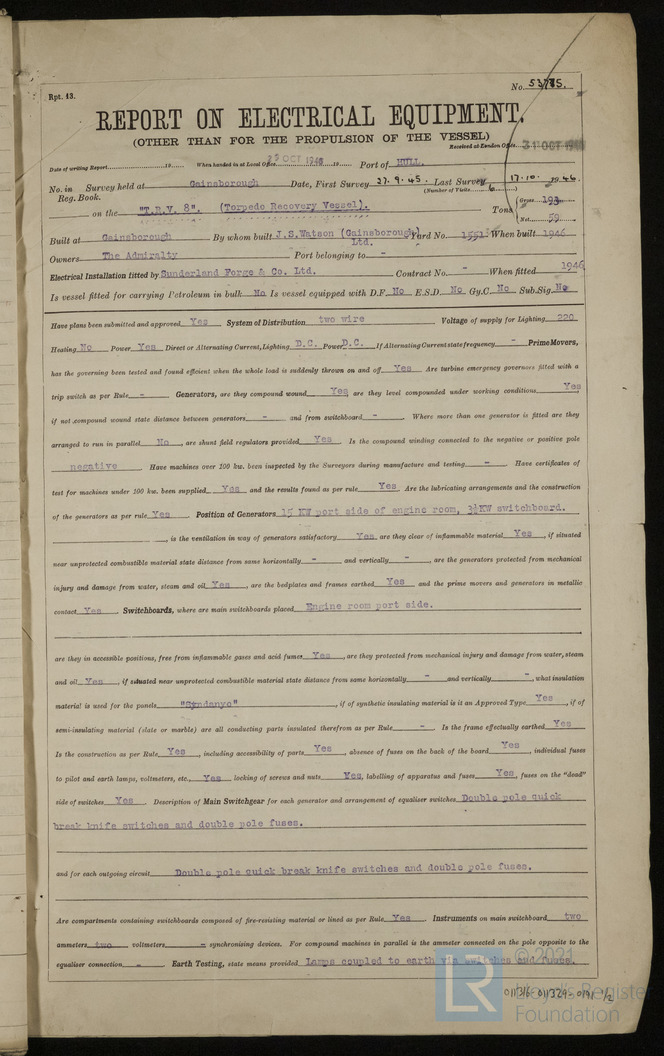 Rpt. 13.
No. 53785.
REPORT ON ELECTRICAL EQUIPMENT.
(OTHER THAN FOR THE PROPULSION OF THE VESSEL)
Received at London Office 31 OCT 1946
Date of writing Report 19 When handed in at Local Office OCT 1946 19 Port of HULL.
No. in Survey held at Gainsborough Date, First Survey 27.9.45. Last Survey 17.10. 1946.
Reg. Book. (Number of Visits 6)
on the "T.R.V. 8". (Torpedo Recovery Vessel). Tons { Gross 193
Net 59
Built at Gainsborough By whom built J.S.Watson (Gainsborough) Ltd. Yard No. 1551 When built 1946
Owners The Admiralty Port belonging to -
Electrical Installation fitted by Sunderland Forge & Co. Ltd. Contract No. - When fitted 1946
Is vessel fitted for carrying Petroleum in bulk No Is vessel equipped with D.F. No E.S.D. No Gy.C. No Sub.Sig. No
Have plans been submitted and approved Yes System of Distribution two wire Voltage of supply for Lighting 220
Heating No Power Yes Direct or Alternating Current, Lighting D.C. Power D.C. If Alternating Current state frequency - Prime Movers,
has the governing been tested and found efficient when the whole load is suddenly thrown on and off Yes Are turbine emergency governors fitted with a
trip switch as per Rule - Generators, are they compound wound Yes are they level compounded under working conditions Yes
if not compound wound state distance between generators - and from switchboard - Where more than one generator is fitted are they
arranged to run in parallel No, are shunt field regulators provided Yes Is the compound winding connected to the negative or positive pole
negative Have machines over 100 kw. been inspected by the Surveyors during manufacture and testing - Have certificates of
test for machines under 100 kw. been supplied Yes and the results found as per rule Yes Are the lubricating arrangements and the construction
of the generators as per rule Yes Position of Generators 15 KW port side of engine room, 3½KW switchboard.
, is the ventilation in way of generators satisfactory Yes are they clear of inflammable material Yes, if situated
near unprotected combustible material state distance from same horizontally - and vertically -, are the generators protected from mechanical
injury and damage from water, steam and oil Yes, are the bedplates and frames earthed Yes and the prime movers and generators in metallic
contact Yes. Switchboards, where are main switchboards placed Engine room port side.
are they in accessible positions, free from inflammable gases and acid fumes Yes, are they protected from mechanical injury and damage from water, steam
and oil Yes, if situated near unprotected combustible material state distance from same horizontally - and vertically -, what insulation
material is used for the panels "Syndanyo", if of synthetic insulating material is it an Approved Type Yes, if of
semi-insulating material (slate or marble) are all conducting parts insulated therefrom as per Rule - Is the frame effectually earthed Yes
Is the construction as per Rule Yes, including accessibility of parts Yes, absence of fuses on the back of the board Yes, individual fuses
to pilot and earth lamps, voltmeters, etc. Yes locking of screws and nuts Yes, labelling of apparatus and fuses Yes, fuses on the "dead"
side of switches Yes. Description of Main Switchgear for each generator and arrangement of equaliser switches Double pole quick
break knife switches and double pole fuses.
and for each outgoing circuit Double pole quick break knife switches and double pole fuses.
Are compartments containing switchboards composed of fire-resisting material or lined as per Rule Yes. Instruments on main switchboard two
ammeters two voltmeters - synchronising devices. For compound machines in parallel is the ammeter connected on the pole opposite to the
equaliser connection -. Earth Testing, state means provided Lamps coupled to earth via switches and fuses.
© 2021
LR Lloyd's Register
Foundation
011316-011324-0191 1/2